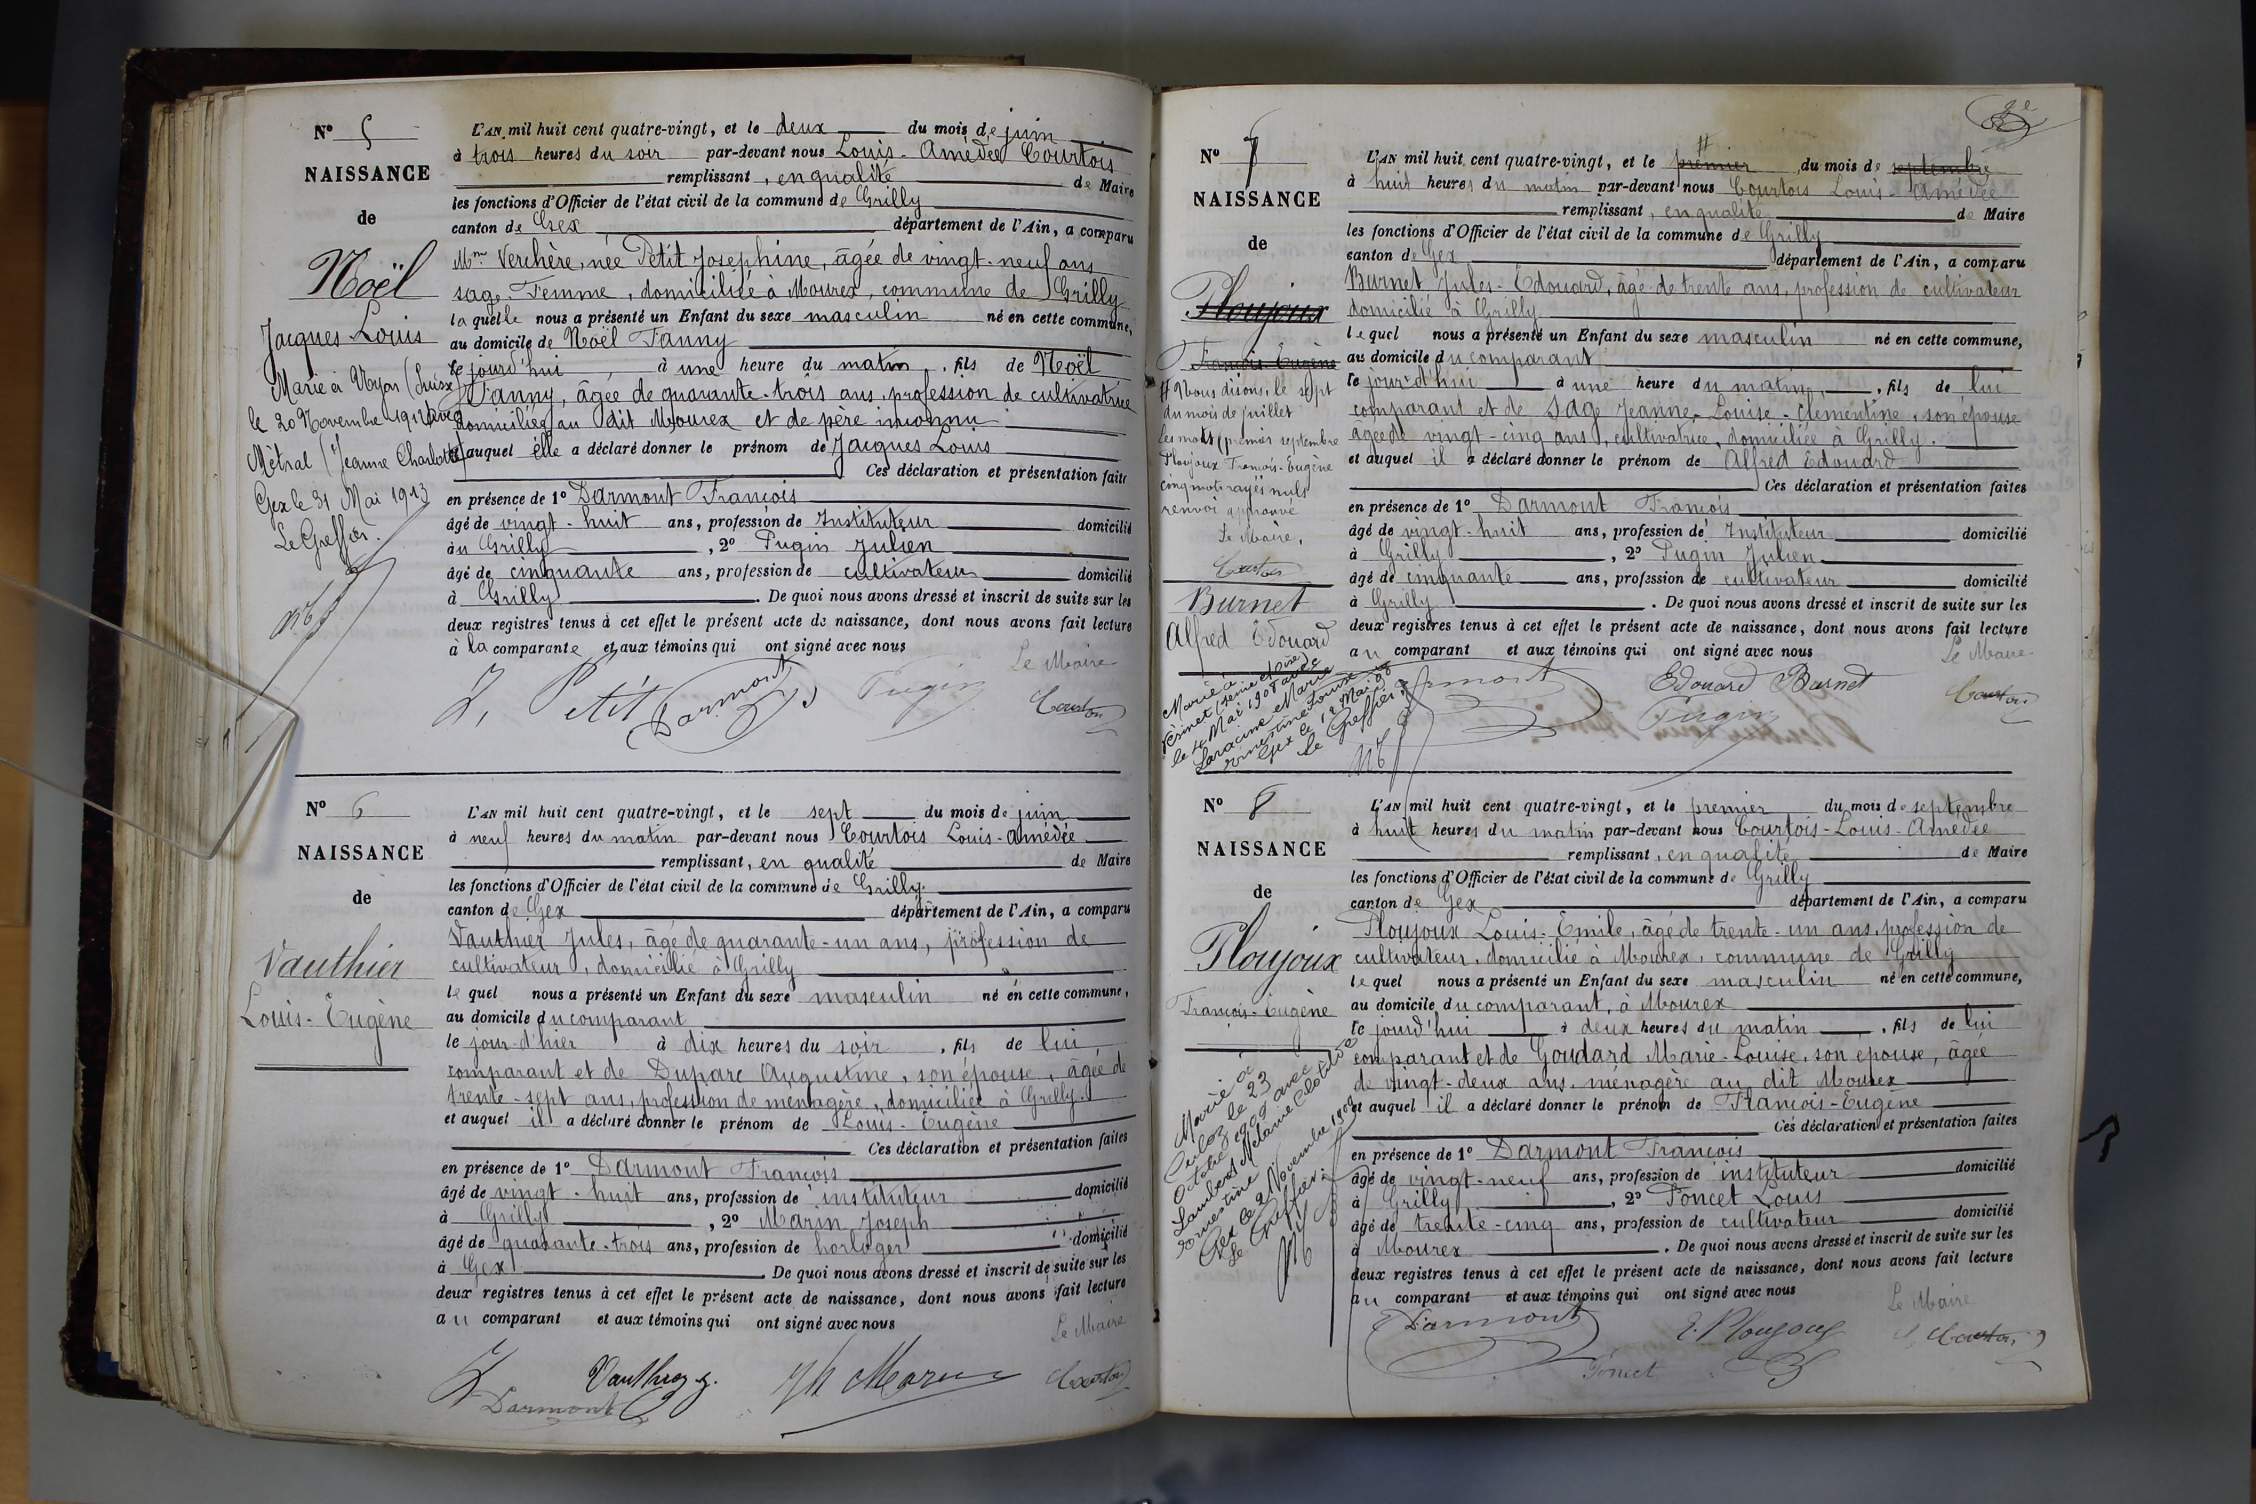 N° 5
NAISSANCE
de
Noël
Jacques Louis
Marié à Noyon (Suisse)
le 20 Novembre 1912 avec
Métral (Jeanne Charlotte)
Gex le 31 Mai 1913
Le Greffier.
L'AN mil huit cent quatre-vingt, et le deux du mois de juin
à trois heures du soir par-devant nous Louis-Amédée Courtois
remplissant, en qualité de Maire
les fonctions d'Officier de l'état civil de la commune de Grilly
canton de Gex département de l'Ain, a comparu
Mme Verchère, née Petit Josephine, âgée de vingt-neuf ans
sage-Femme, domiciliée à Mourex, commune de Grilly
laquelle nous a présenté un Enfant du sexe masculin né en cette commune,
au domicile de Noël Fanny
le jourd'hui à une heure du matin, fils de Noël
Fanny, âgée de quarante-trois ans, profession de cultivatrice
domiciliée au dit Mourex et de père inconnu
et auquel elle a déclaré donner le prénom de Jacques Louis
Ces déclaration et présentation faites
en présence de 1° Darmont François
âgé de vingt-huit ans, profession de Instituteur domicilié
à Grilly, 2° Pugin Julien
âgé de cinquante ans, profession de cultivateur domicilié
à Grilly. De quoi nous avons dressé et inscrit de suite sur les
deux registres tenus à cet effet le présent acte de naissance, dont nous avons fait lecture
à la comparante et aux témoins qui ont signé avec nous
Le Maire
J, Petit Darmont Pugin Courtois
N° 6
NAISSANCE
de
Vauthier
Louis-Eugène
L'AN mil huit cent quatre-vingt, et le sept du mois de juin
à neuf heures du matin par-devant nous Courtois Louis-Amédée
remplissant, en qualité de Maire
les fonctions d'Officier de l'état civil de la commune de Grilly
canton de Gex département de l'Ain, a comparu
Vauthier Jules, âgé de quarante-un ans, profession de
cultivateur, domicilié à Grilly
lequel nous a présenté un Enfant du sexe masculin né en cette commune,
au domicile du comparant
le jour d'hier à dix heures du soir, fils de lui
comparant et de Duparc Augustine, son épouse, âgée de
trente-sept ans, profession de ménagère, domiciliée à Grilly.
et auquel il a déclaré donner le prénom de Louis-Eugène
Ces déclaration et présentation faites
en présence de 1° Darmont François
âgé de vingt-huit ans, profession de instituteur domicilié
à Grilly, 2° Marin Joseph
âgé de quarante-trois ans, profession de horloger domicilié
à Gex. De quoi nous avons dressé et inscrit de suite sur les
deux registres tenus à cet effet le présent acte de naissance, dont nous avons fait lecture
au comparant et aux témoins qui ont signé avec nous
Le Maire
Darmont Jh Marin Courtois
N° 7
NAISSANCE
de
Ploujoux
François-Eugène
# Nous disons, le sept
du mois de juillet
Les mots (premier septembre
Ploujoux François-Eugène
cinq mots rayés nuls
renvoi approuvé
Le Maire,
Courtois
Burnet
Alfred Edouard
Marié à
Vésinet (Seine et Oise)
le 4 Mai 1908 avec
Laracine Marie
Ernestine Louise
Gex le 12 Mai 08
Le Greffier
L'AN mil huit cent quatre-vingt, et le # premier du mois de septembre
à huit heures du matin par-devant nous Courtois Louis-Amédée
remplissant, en qualité de Maire
les fonctions d'Officier de l'état civil de la commune de Grilly
canton de Gex département de l'Ain, a comparu
Burnet Jules-Edouard, âgé de trente ans, profession de cultivateur
domicilié à Grilly
lequel nous a présenté un Enfant du sexe masculin né en cette commune,
au domicile du comparant
le jourd'hui à une heure du matin, fils de lui
comparant et de Sage Jeanne-Louise-Clémentine, son épouse
âgée de vingt-cinq ans, cultivatrice, domiciliée à Grilly.
et auquel il a déclaré donner le prénom de Alfred Edouard
Ces déclaration et présentation faites
en présence de 1° Darmont François
âgé de vingt-huit ans, profession de Instituteur domicilié
à Grilly, 2° Pugin Julien
âgé de cinquante ans, profession de cultivateur domicilié
à Grilly. De quoi nous avons dressé et inscrit de suite sur les
deux registres tenus à cet effet le présent acte de naissance, dont nous avons fait lecture
au comparant et aux témoins qui ont signé avec nous
Le Maire
Darmont Edouard Burnet Courtois
Pugin
N° 8
NAISSANCE
de
Ploujoux
François-Eugène
Marié à
le 23
Octobre 1909 avec
Mélanie Clotilde
Ernestine
Gex le 2 Novembre 1909
Le Greffier
L'AN mil huit cent quatre-vingt, et le premier du mois de septembre
à huit heures du matin par-devant nous Courtois-Louis-Amédée
remplissant, en qualité de Maire
les fonctions d'Officier de l'état civil de la commune de Grilly
canton de Gex département de l'Ain, a comparu
Ploujoux Louis-Emile, âgé de trente-un ans, profession de
cultivateur, domicilié à Mourex, commune de Grilly
lequel nous a présenté un Enfant du sexe masculin né en cette commune,
au domicile du comparant, à Mourex
le jourd'hui à deux heures du matin, fils de lui
comparant et de Goudard Marie-Louise, son épouse, âgée
de vingt-deux ans, ménagère au dit Mourex
et auquel il a déclaré donner le prénom de François-Eugène
Ces déclaration et présentation faites
en présence de 1° Darmont François
âgé de vingt-neuf ans, profession de instituteur domicilié
à Grilly, 2° Poncet Louis
âgé de trente-cinq ans, profession de cultivateur domicilié
à Mourex. De quoi nous avons dressé et inscrit de suite sur les
deux registres tenus à cet effet le présent acte de naissance, dont nous avons fait lecture
au comparant et aux témoins qui ont signé avec nous
Le Maire
Darmont E. Ploujoux Courtois
Poncet